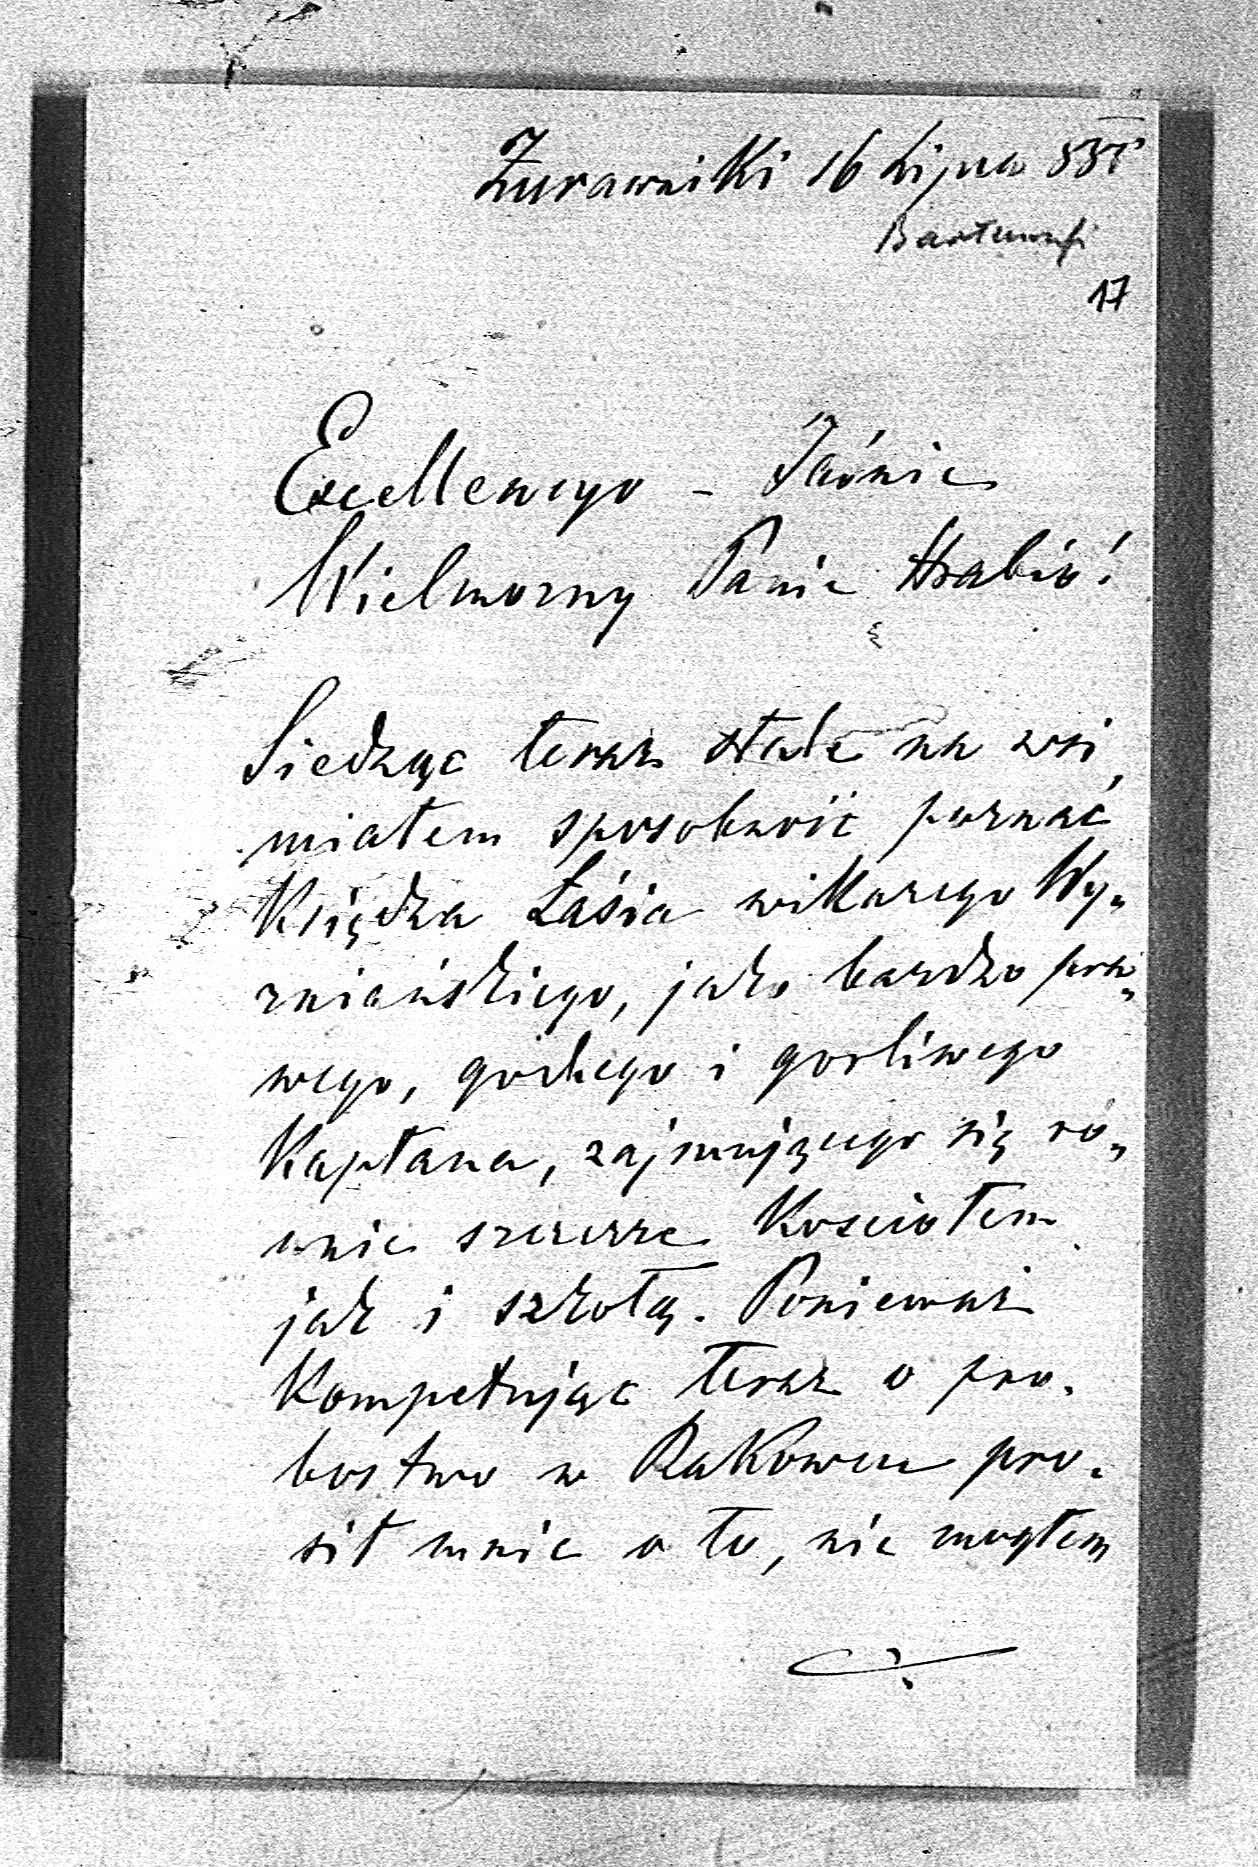 Żurawniki 16 Lipca
17
Excellencyo - Jaśnie
Wielmorzny Panie Hrabio!
Siedząc teraz stale na wsi,
miałem sposobność poznać
Księdza Łasia wikarego Wy„
zniańskiego, jako bardzo pra„
wego, godnego i gorliwego
Kapłana, zajmującego się ró„
wnie szczerze Kosciołem
jak i szkołą. Ponieważ
Kompetując teraz o pro.
bostwo w Rakowcu pro.
sił mnie o to, nie mogłem